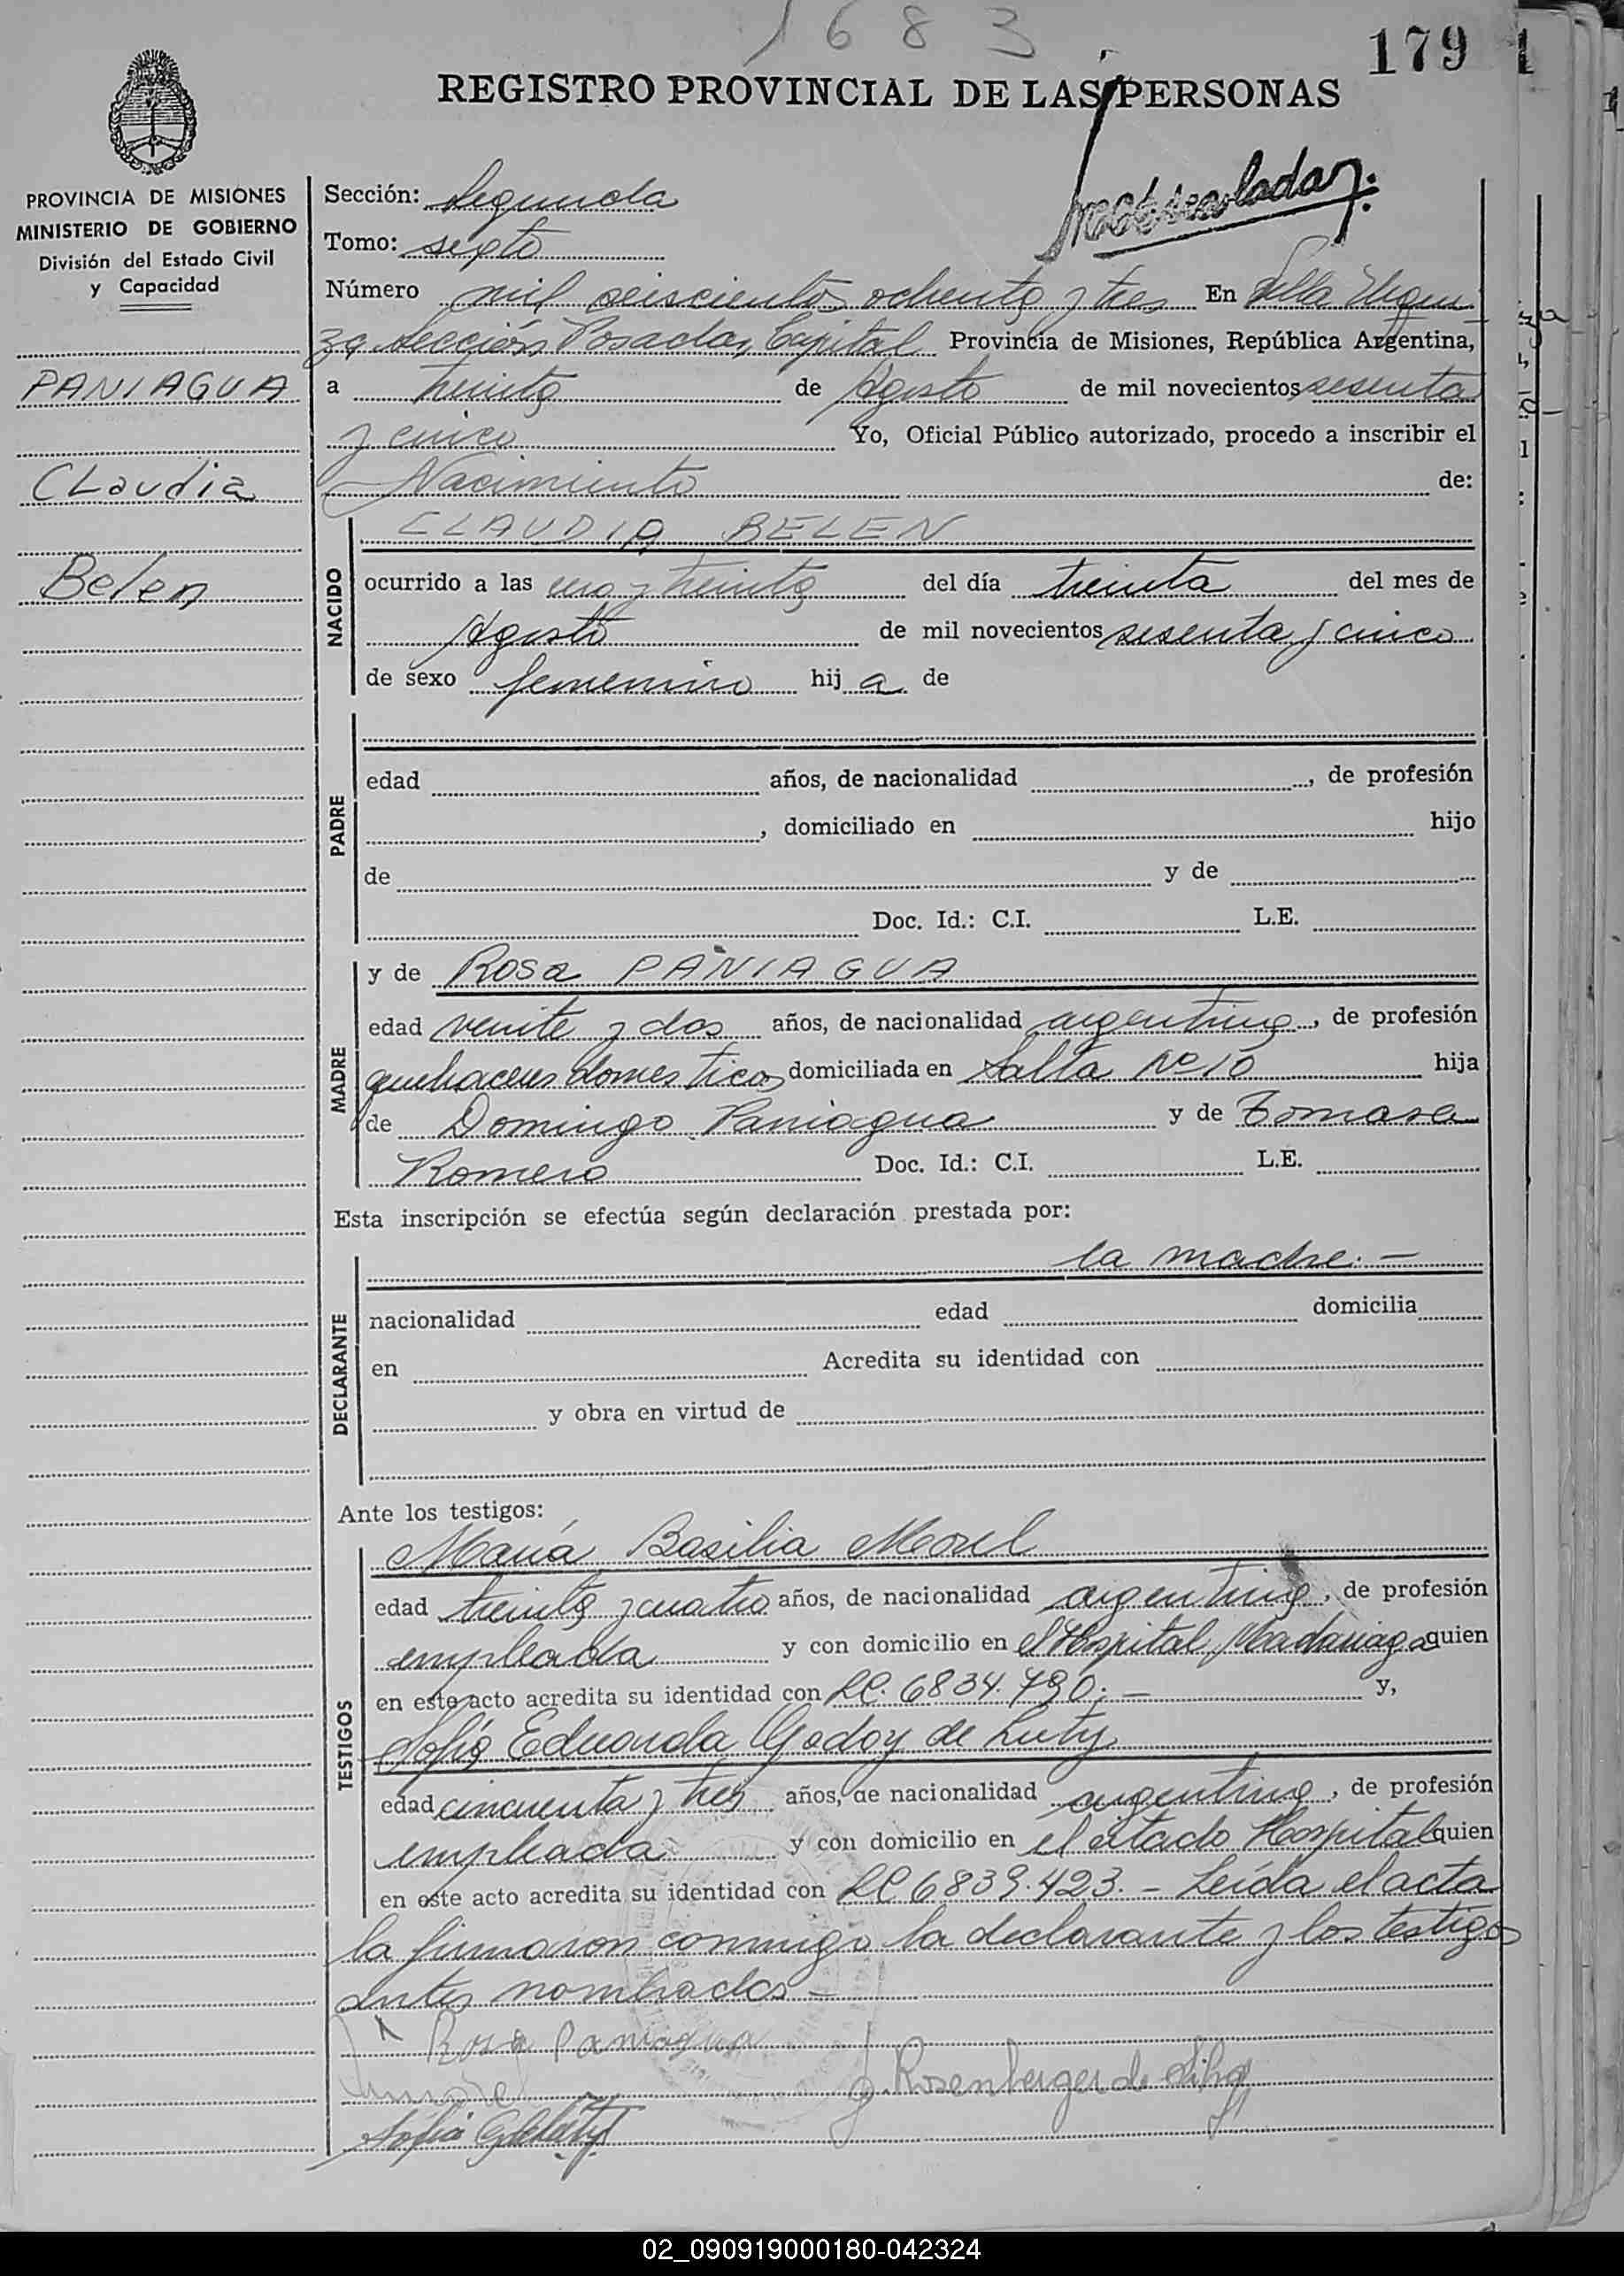 1683
179
REGISTRO PROVINCIAL DE LAS PERSONAS
PROVINCIA DE MISIONES
MINISTERIO DE GOBIERNO
División del Estado Civil
y Capacidad
PANIAGUA
Claudia
Belen
Sección: Segunda
Tomo: sexto
Número mil seiscientos ochenta y tres En Villa Urquiza Sección Posadas, Capital Provincia de Misiones, República Argentina,
a treinta de Agosto de mil novecientos sesenta
y cinco Yo, Oficial Público autorizado, procedo a inscribir el
Nacimiento de:
NACIDO
CLAUDIA BELEN
ocurrido a las una y treinta del día treinta del mes de
Agosto de mil novecientos sesenta y cinco
de sexo femenino hija de
PADRE
edad años, de nacionalidad , de profesión
, domiciliado en hijo
de y de
Doc. Id.: C.I. L.E.
MADRE
y de Rosa PANIAGUA
edad veinte y dos años, de nacionalidad argentina, de profesión
quehaceres domesticos domiciliada en Salta Nº 10 hija
de Domingo Paniagua y de Tomasa
Romero Doc. Id.: C.I. L.E.
Esta inscripción se efectúa según declaración prestada por:
DECLARANTE
la madre.-
nacionalidad edad domicilia
en Acredita su identidad con
y obra en virtud de
Ante los testigos:
TESTIGOS
María Basilia Morel
edad treinta y cuatro años, de nacionalidad argentina, de profesión
empleada y con domicilio en el Hospital Madariaga quien
en este acto acredita su identidad con LC. 6834.790.- y,
Sofía Eduarda Godoy de Luty
edad cincuenta y tres años, de nacionalidad argentina, de profesión
empleada y con domicilio en el citado Hospital quien
en este acto acredita su identidad con LC 6839.423.- Leída el acta
la firmaron conmigo la declarante y los testigos
antes nombrados-
Rosa Paniagua
Rosenberger de
Sofia
02_090919000180-042324